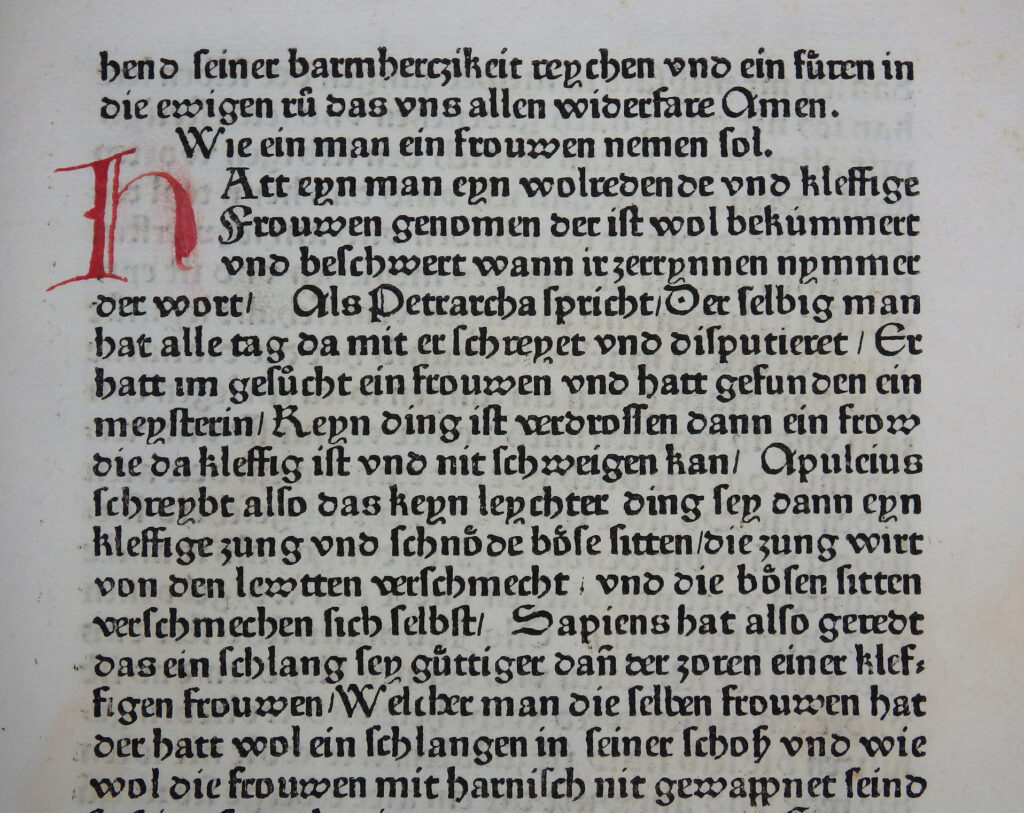 hend seiner barmherczikeit reychen vnd ein fůren in
die ewigen rů das vns allen widerfare Amen.
Wie ein man ein frouwen nemen sol.
HAtt eyn man eyn wolredende vnd kleffige
Frouwen genomen der ist wol bekúmmert
vnd beschwert wann ir zerrynnen nymmer
der wort/ Als Petrarcha spricht/Der selbig man
hat alle tag da mit er schreyet vnd disputieret / Er
hatt im gesůcht ein frouwen vnd hatt gefunden ein
meysterin/ Keyn ding ist verdrossen dann ein frow
die da kleffig ist vnd nit schweigen kan/ Apuleius
schreybt also das keyn leychter ding sey dann eyn
kleffige zung vnd schnöde böse sitten/die zung wirt
von den lewtten verschmecht / vnd die bösen sitten
verschmechen sich selbst/ Sapiens hat also geredt
das ein schlang sey gůttiger dañ der zoren einer klef⸗
figen frouwen/Welcher man die selben frouwen hat
der hatt wol ein schlangen in seiner schoß vnd wie
wol die frouwen mit harnisch nit gewappnet seind